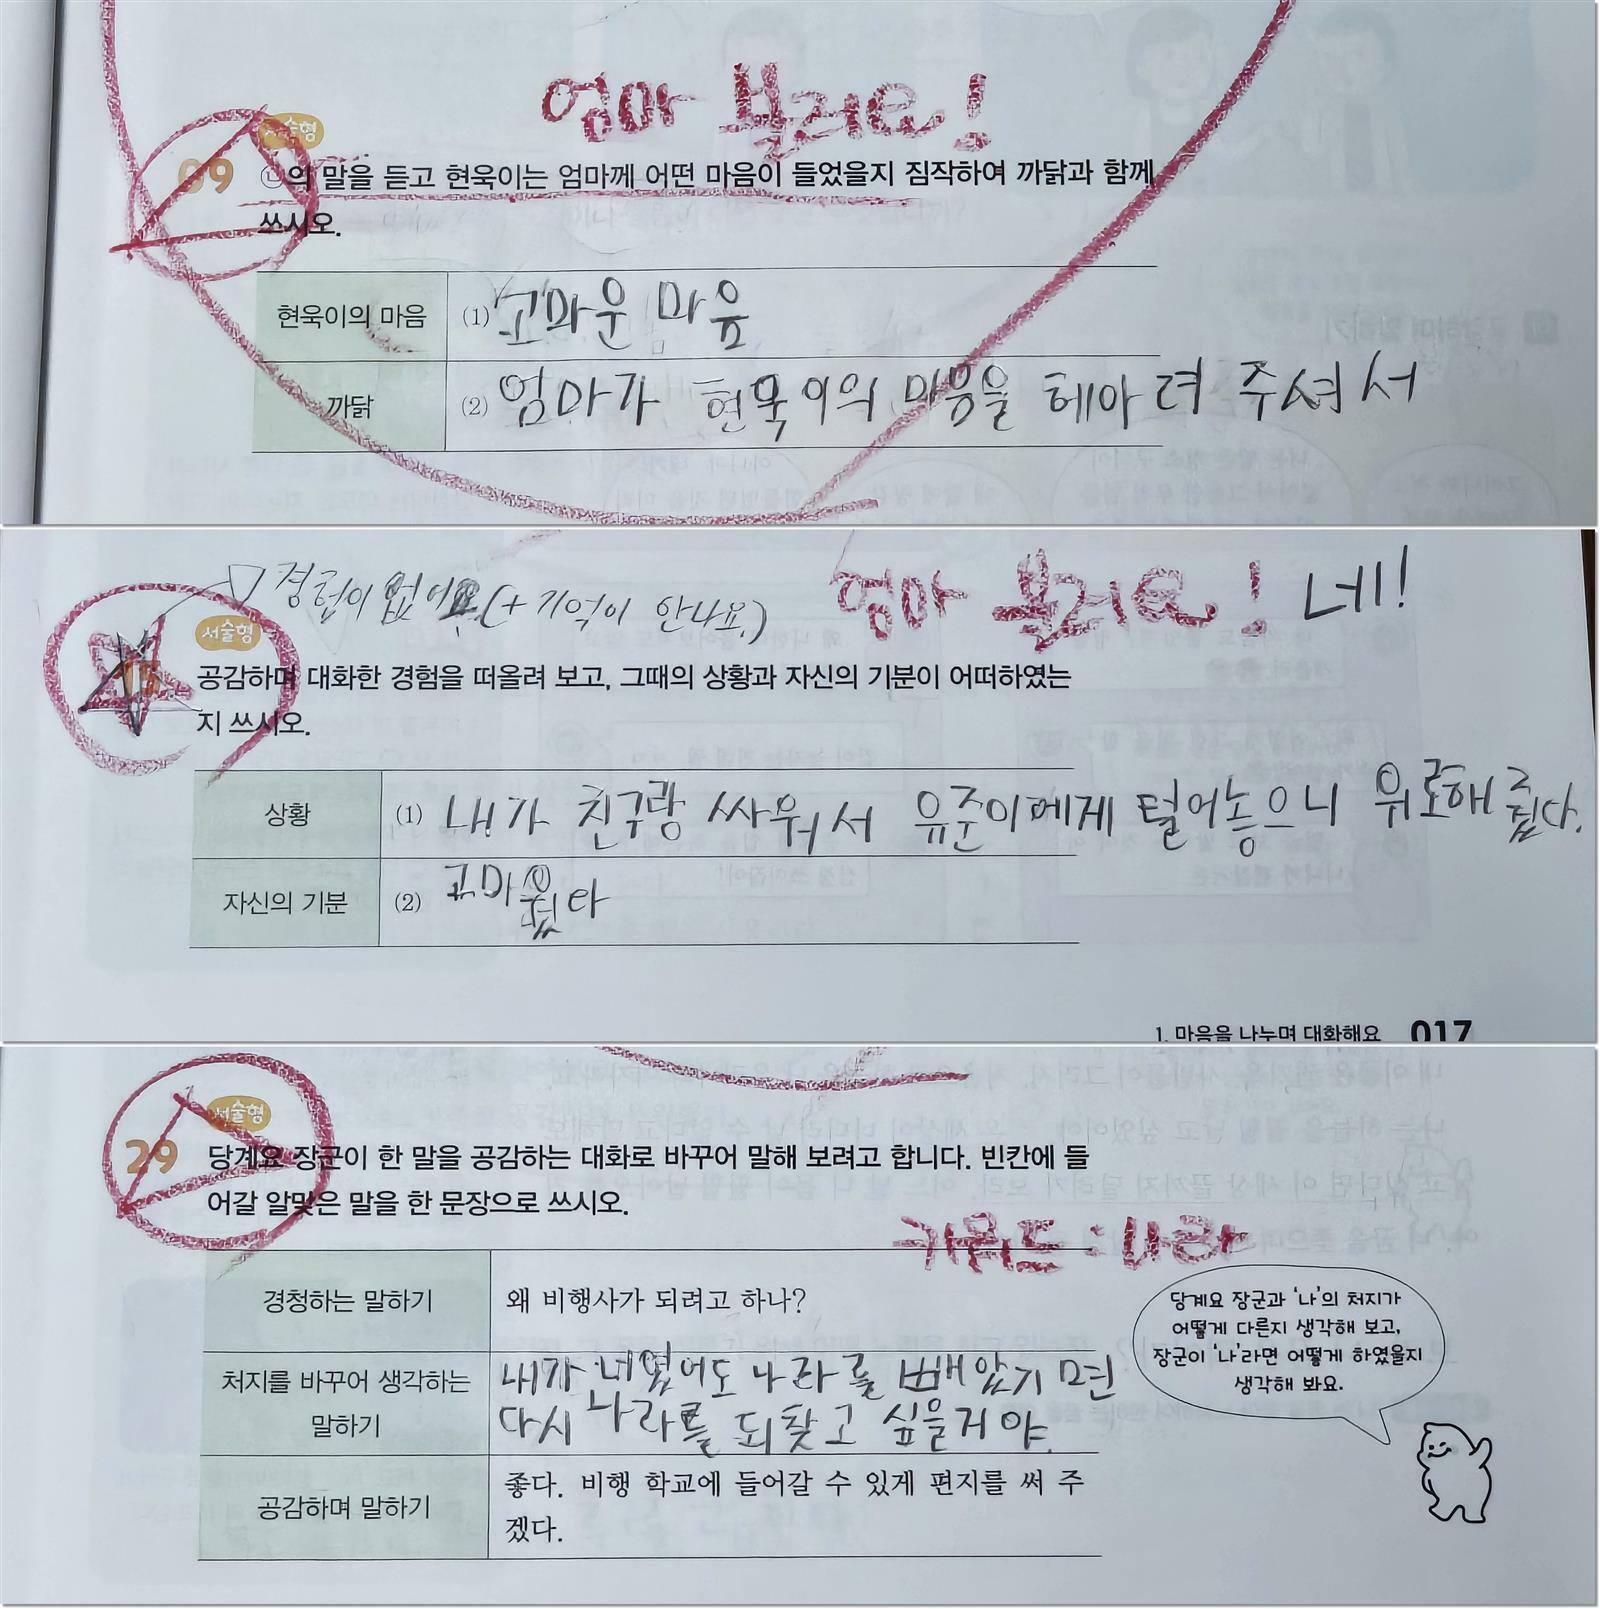 엄마 불러요!
서술형
09 ㉡의 말을 듣고 현욱이는 엄마께 어떤 마음이 들었을지 짐작하여 까닭과 함께
쓰시오.
현욱이의 마음 (1) 고마운 마음
까닭 (2) 엄마가 현욱이의 마음을 헤아려 주셔서
경험이 없어요(+ 기억이 안나요.)
엄마 불러요! 네!
서술형
15 공감하며 대화한 경험을 떠올려 보고, 그때의 상황과 자신의 기분이 어떠하였는
지 쓰시오.
상황 (1) 내가 친구랑 싸워서 유준이에게 털어놓으니 위로해줬다.
자신의 기분 (2) 고마웠다
1. 마음을 나누며 대화해요 017
서술형
29 당계요 장군이 한 말을 공감하는 대화로 바꾸어 말해 보려고 합니다. 빈칸에 들
어갈 알맞은 말을 한 문장으로 쓰시오.
키워드 : 나라
경청하는 말하기 왜 비행사가 되려고 하나?
처지를 바꾸어 생각하는
말하기
내가 너였어도 나라를 빼았기면
다시 나라를 되찾고 싶을거야.
공감하며 말하기
좋다. 비행 학교에 들어갈 수 있게 편지를 써 주
겠다.
당계요 장군과 '나'의 처지가
어떻게 다른지 생각해 보고,
장군이 '나'라면 어떻게 하였을지
생각해 봐요.